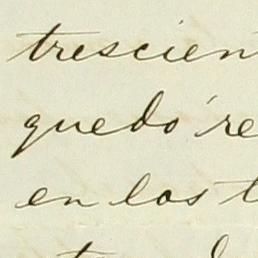 trescien
quedó re
en los t